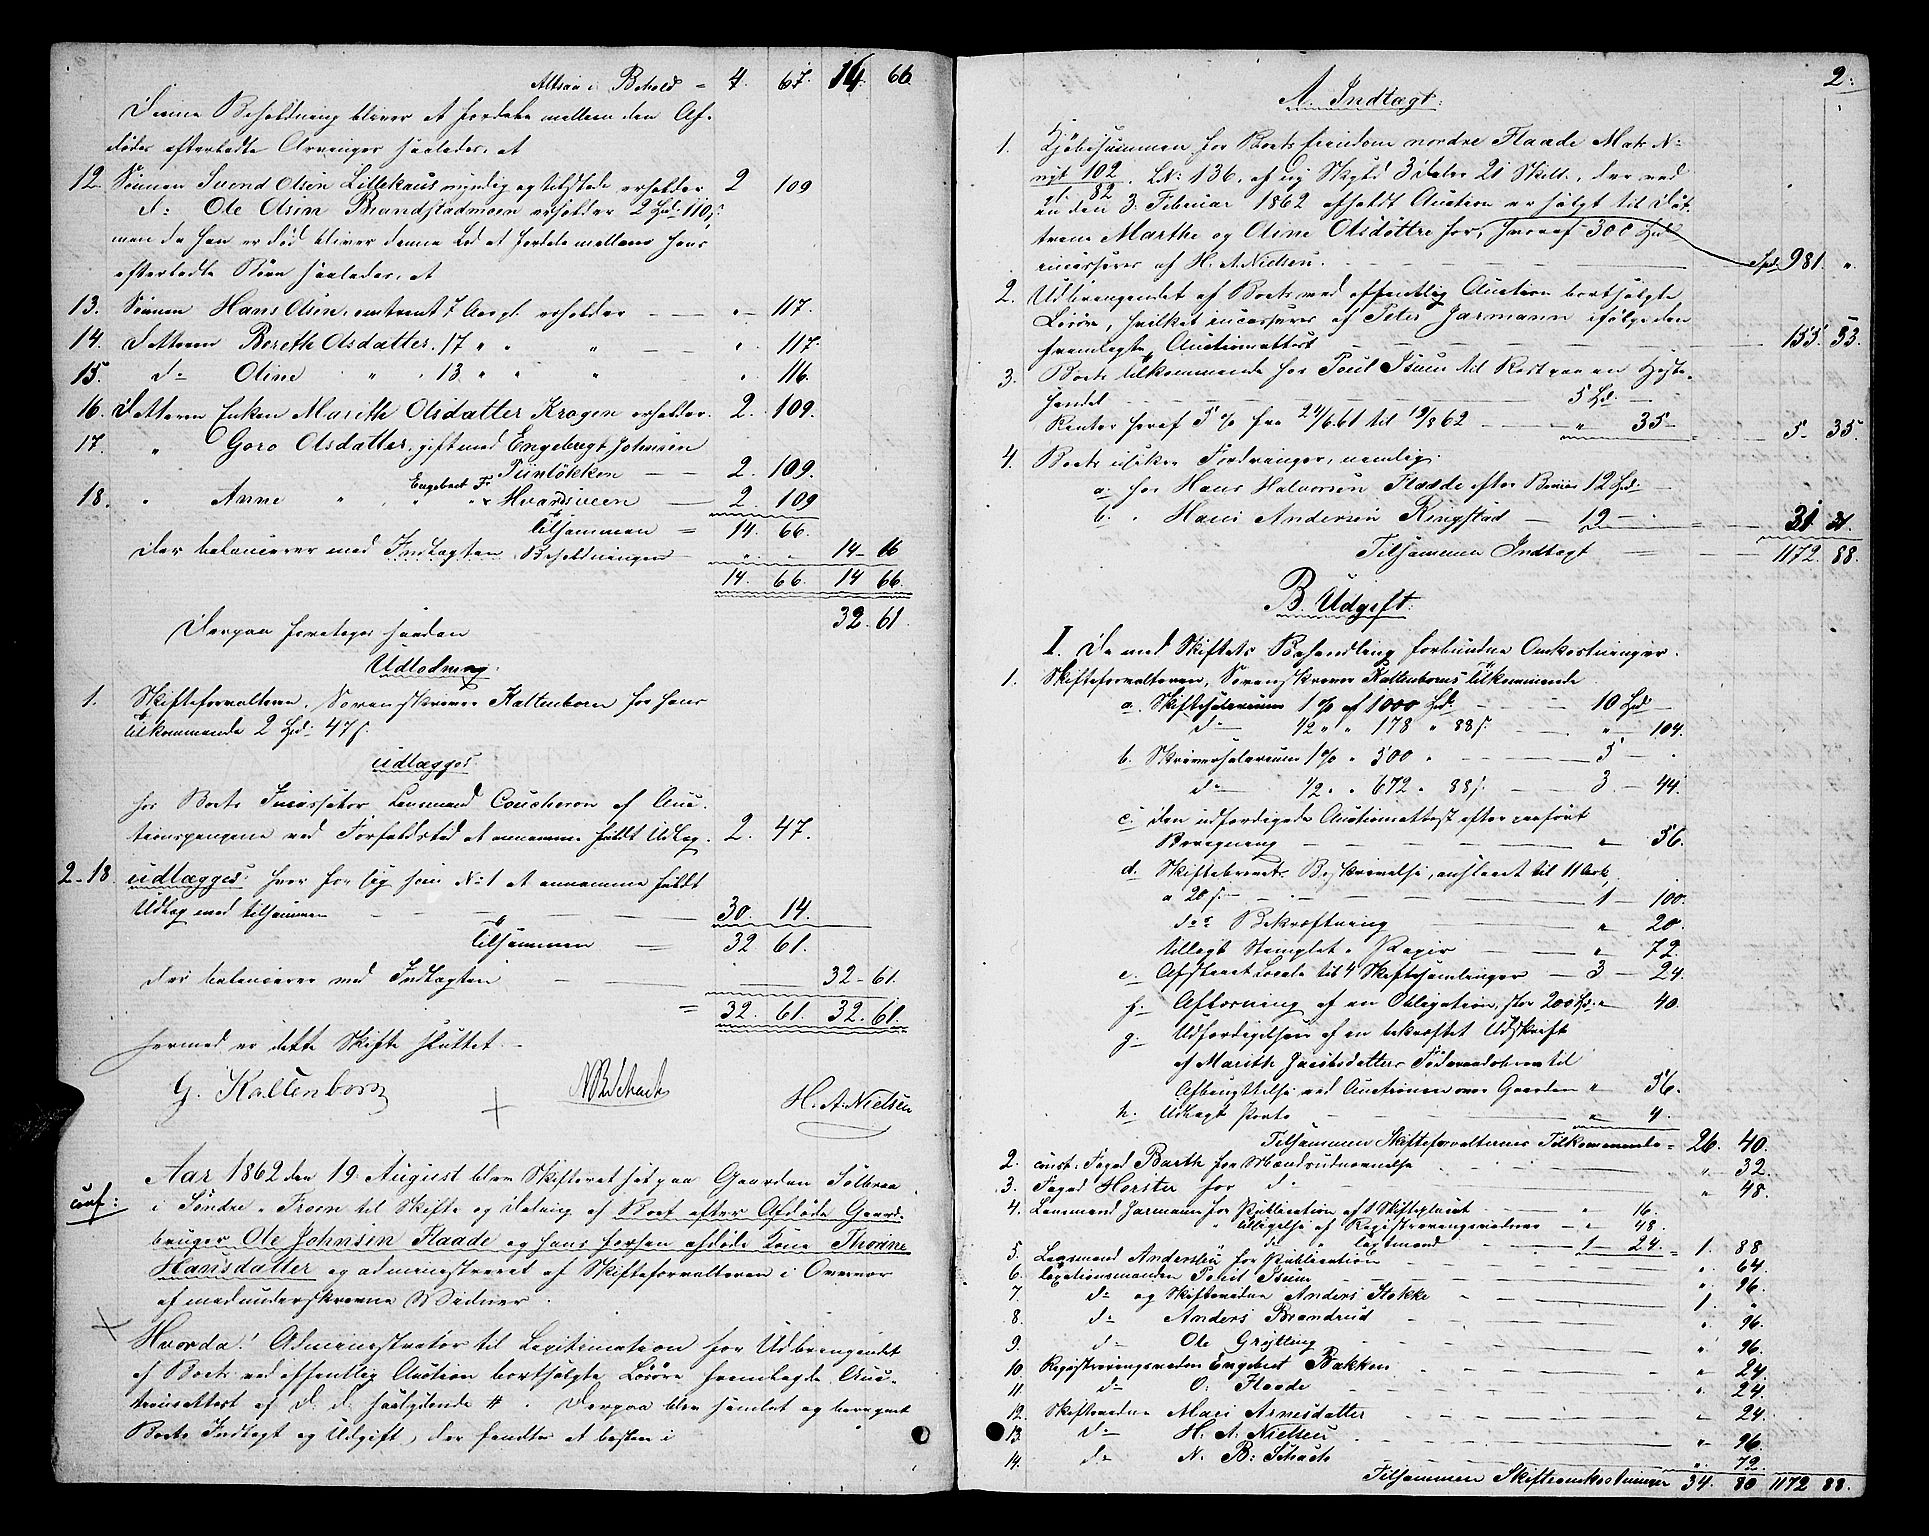 Altsaa i Behold = 4. 67. 14. 66
Denne Beholdning bliver at fordele mellem den Af-
dødes efterladte Arvinger saaledes, at
12. Sønnen Svend Olsen Lillekaus myndig og tilstede erholder 2 109
do Ole Olsen Brandstadmoen erholder 2 Spd. 110 s.
men da han er død bliver denne Lod at fordele mellem hans
efterladte Børn saaledes, at
13. Sønnen Hans Olsen, omtrent 7 Aar gl. erholder — — " — 117.
14. Datteren Berethe Olsdatter, 17 " " " — — " 117.
15. do Oline " " 13 " " " — " 116.
16. Datteren Enken Marith Olsdatter Kragen erholder. 2. 109.
17. " Goro Olsdatter, gift med Engebregt Johnsen
Tiinløkken — — 2. 109.
18. " Anne " " Engebret Fr. Hvardsveen — 2. 109
Tilsammen = 14. 66.
der balancerer med Indtægten, Beholdningen — " — 14 - 66
14. 66. 14 66.
32. 61.
Derpaa foretoges saadan
Udlodning:
1. Skifteforvalteren, Sorenskriver Kaltenborn for hans
Tilkommende 2 Spd. 47 s.
udlægges
hos Boets Incassator Lensmand Coucheron af Auc-
tionspengene ved Forfaldstid at annamme fuldt Udlæg. 2. 47.
2-18 udlægges: hver for sig som No 1 at annamme fuldt
Udlæg med tilsammen — — — — 30. 14.
Tilsammen = 32 61.
der balancerer med Indtægten — — 32 - 61.
= 32. 61. 32. 61.
Hermed er dette Skifte sluttet. —
G. Kaltenborn N B Schach H. A. Nielsen
Aar 1862 den 19. August blev Skifteret sat paa Gaarden Solbraa
conf: i Søndre - Froen til Skifte og Deling af Boet efter Afdøde Gaard-
bruger Ole Johnsen Flaade og hans forhen afdøde Kone Thorine
Hansdatter og administreret af Skifteforvalteren i Overvær
af medunderskrevne Vidner.
Hvorda! Administrator til Legitimation for Udbringendet
af Boets ved offentlig Auction bortsolgte Løsøre fremlagde Auc-
tionsattest af D. D. saalydende # . Derpaa blev samlet og beregnet
Boets Indtægt og Udgift, der fandtes at bestaa i
2.
A. Indtægt:
1. Kjøbesummen for Boets Eiendom nordre Flaade Matr. No
nyt 102 82. LNo 136. af ny Skyld 3 daler 21 Skill., der ved
en den 3. Februar 1862 afholdt Auction er solgt til Døt-
trene Marthe og Oline Olsdøttre for, hvoraf 300 Spd.
incasseres af H. A. Nielsen. — — — — Spd. 981. "
2. Udbringendet af Boets ved offentlig Auction bortsolgte
Løsøre, hvilket incasseres af Peter Jarmann ifølge den
fremlagte Auctionsattest — — — — 155. 53.
3. Boets tilkommende hos Poul Isum til Rest paa en Heste-
handel — — — — 5 Spd. —
Renter heraf 5 % fra 24/6.61 til 19/8 62 — — " 35 — 5 - 35.
4. Boets usikre Fordringer, nemlig:
a. hos Hans Halvorsen Flaade efter Beviis 12 Spd. —
b. " Hans Andersen Ringstad — 12 — — — 31. 31.
Tilsammen Indtægt = — — 1172. 88.
B. Udgift:
I. De med Skiftets Behandling forbundne Omkostninger.
1. Skifteforvalteren, Sorenskriver Kaltenborns Tilkommende
a. Skiftesalarium 1 % af 1000 Spd. — — 10 Spd —
do 1/2 " " 178 " 88 s. — — " — 104.
b. Skriversalarium 1 % " 500 " — — 5 — "
do — 1/2 " " 672 " 88 s. — — 3. — 44.
c. Den udfærdigede Auctionsattest efter paaført
Beregning — — — — " — 56.
d. Skiftebrevets Beskrivelse, anslaaet til 11 Ark,
a 20 s. — — — — 1 — 100.
do's Bekræftning — — " — 20.
tillagt Stemplet - Papir — — " — 72.
e. Afstaaet Locale til 4 Skiftesamlinger — 3 — 24.
f. Aflæsning af en Obligation, stor 200 Spd. " — 40.
g. Udfærdigelsen af en bekræftet Udskrift
af Marith Jacobsdatters Føderaadsbrev til
Afbenyttelse ved Auctionen over Gaarden " — 56.
h. Udlagt Porto — — — — " — 4.
Tilsammen Skifteforvalternes Tilkommende = 26. 40.
2. const. Foged Barth for Mændsudnævnelse — — " 32.
3. Foged Horster for do — — — — " 48.
4. Lensmand Jarmann for Publication af 1 Skifteplacat — " 16.
" Tilsigelse af Registreringsvidner — " — 48.
do Lagtmænd — — 1 — 24. 1. 88
5. Lensmand Andersen for Publication — — — " 64.
6. Taxationsmanden Poul Isum — — — — " 96.
7. do og Skiftevidne Anders Stokke — — — 1. "
8. do Anders Brandrud — — — " 96.
9. do Ole Grytting — — — " 96.
10. Registreringsvidne Engebret Bakken — — — " 24.
11. do O. Flaade — — — " 24.
12. Skiftevidne Mari Arnesdatter — — — " 24.
13. do H. A. Nielsen — — — " 96.
14. do N. B. Schach — — — " 72.
Tilsammen Skifteomkostninger 34. 80 1172 88.